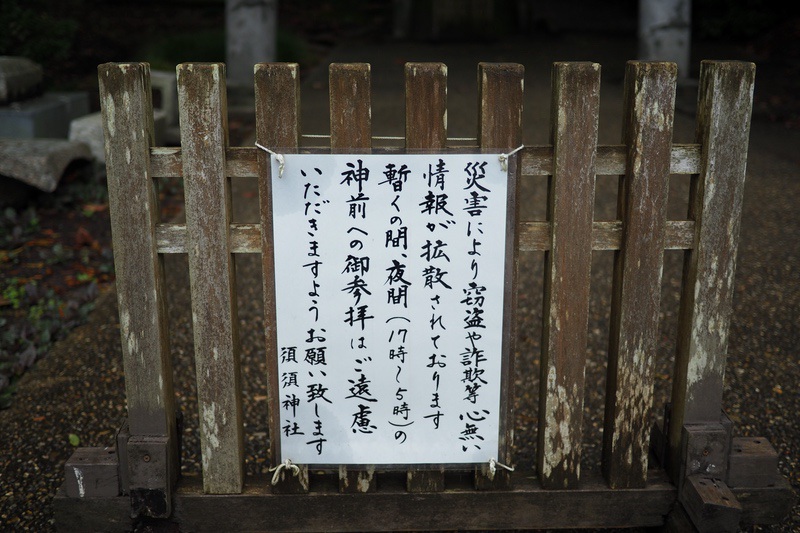 災害により窃盗や詐欺等心無い
情報が拡散されております
暫くの間、夜間(17時〜5時)の
神前への御参拝はご遠慮
いただきますようお願い致します
須須神社